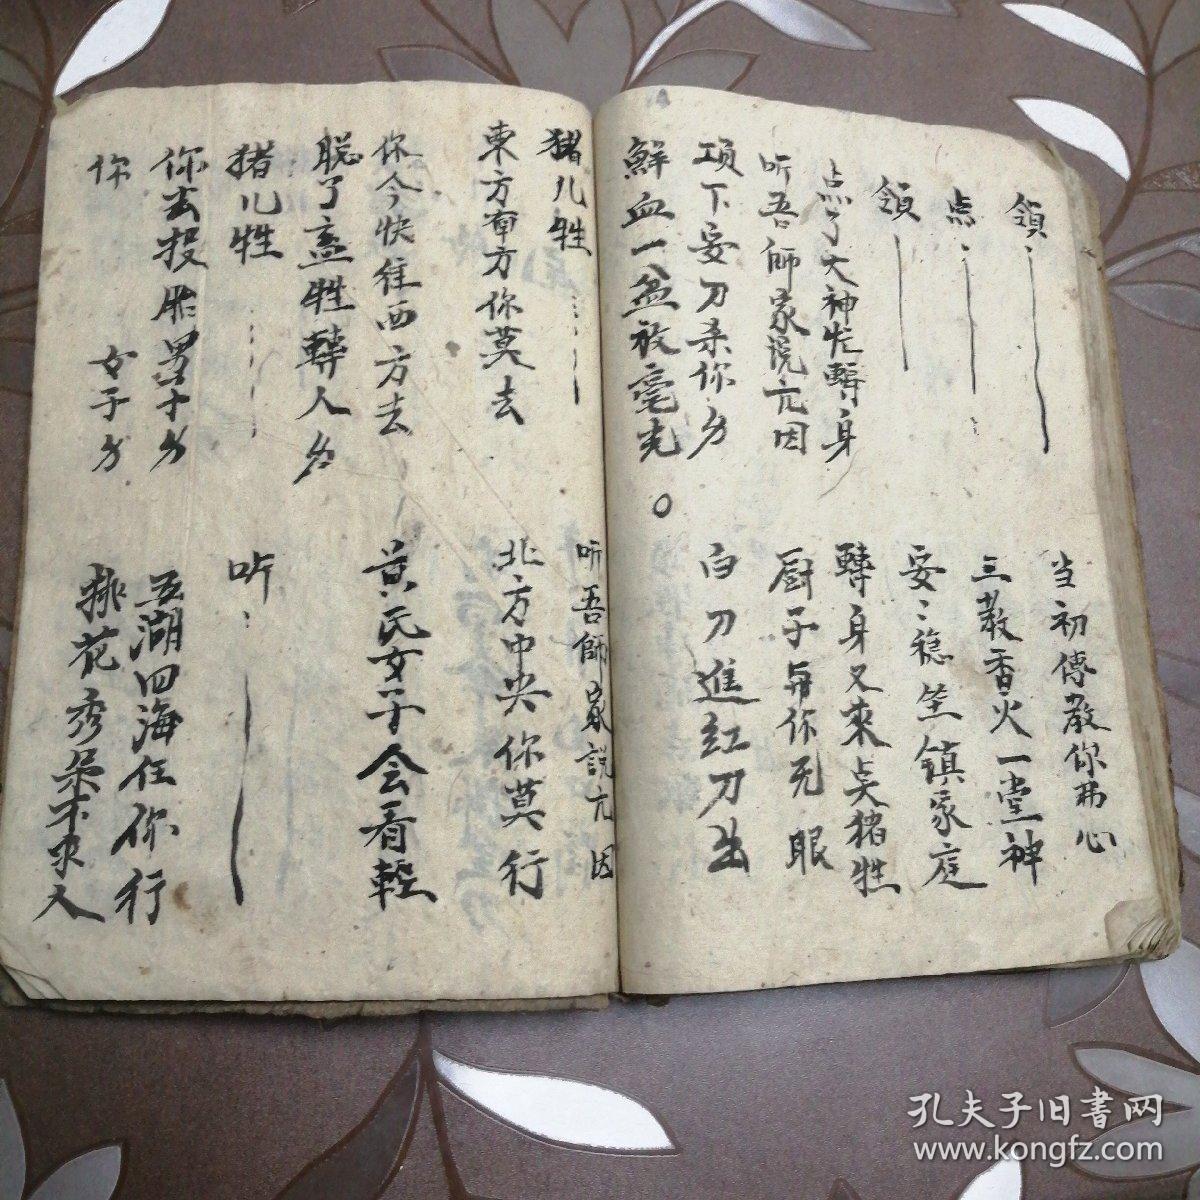 領⋮ 当初傳教你弗心
点⋮ 三教香火一堂神
領 安⋮穏坐鎮家庭
点了大神忙轉身 轉身又來点猪牲
听吾師家说元因 厨子与你无眼
项下安刀杀你分 白刀進紅刀出
鮮血一盆放毫光○
猪儿牲⋮ 听吾師家説元因
東方南方你莫去 北方中央你莫行
你今快往西方去 黄氏女子会看輕
脱了盖牲轉人身
猪儿牲⋮ 听⋮
你去投胎男子分 五湖四海任你行
你 女子分 排花秀朵不求人
孔夫子旧書网
www.kongfz.com